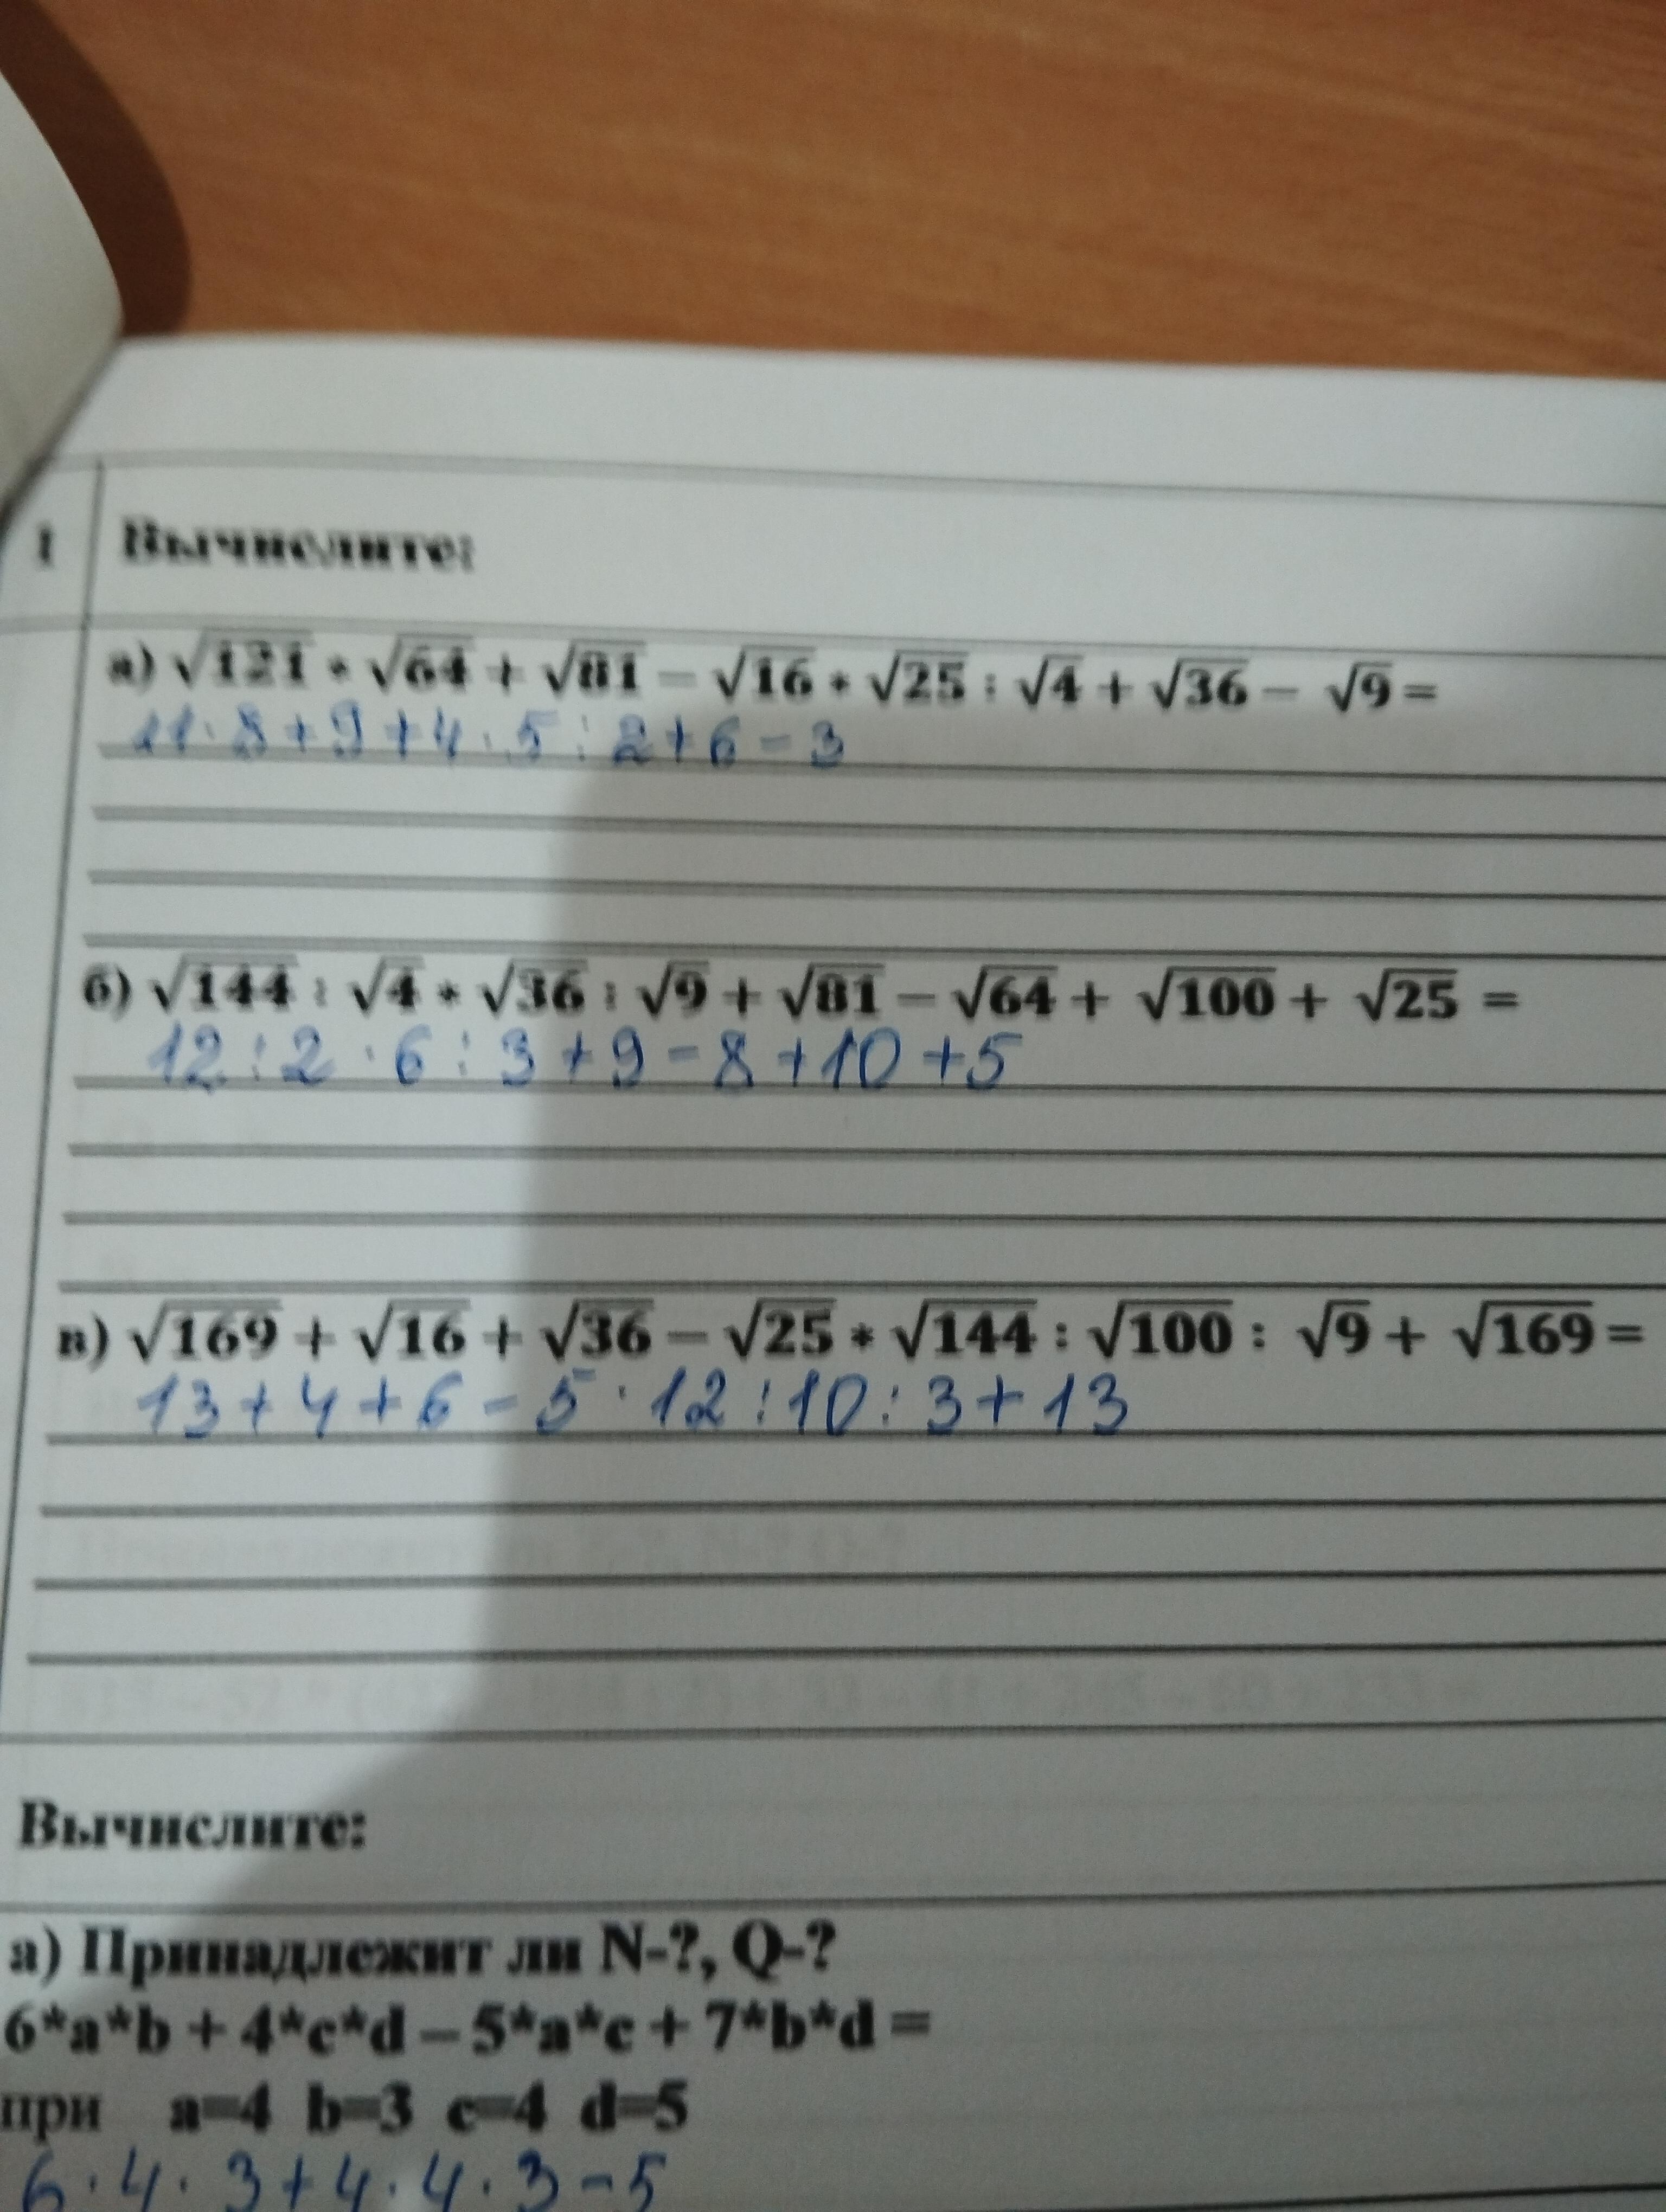 1 Вычислите:
а) √121 * √64 + √81 − √16 * √25 : √4 + √36 − √9 =
11·8+9+4·5:2+6-3
б) √144 : √4 * √36 : √9 + √81 − √64 + √100 + √25 =
12:2·6:3+9-8+10+5
в) √169 + √16 + √36 − √25 * √144 : √100 : √9 + √169 =
13+4+6-5·12:10:3+13
Вычислите:
а) Принадлежит ли N-?, Q-?
6*a*b + 4*c*d – 5*a*c + 7*b*d =
при a=4 b=3 c=4 d=5
6·4·3+4·4·3-5